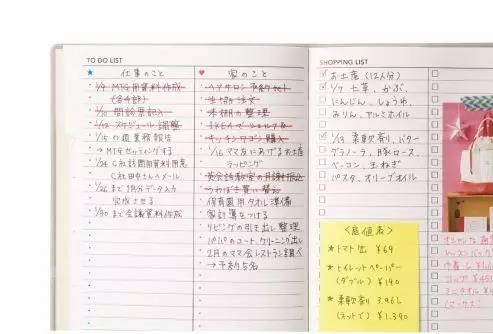 TO DO LIST
★ 仕事のこと
1/9 MTG用資料作成
(各4部)
1/10 問診票記入
1/12 スケジュール調整
1/15 の週 業務報告
→MTGセッティングする
1/24 C社訪問用資料用意
C社田中さんへメール
1/26 まで1月分データ入力
完成させる
1/30 まで会議資料作成
♥ 家のこと
ヘアサロン予約
生協注文
味噌の整理
IKEAで
キッチンワゴン購入
1/16 ママ友にあげるお土産
ラッピング
英会話教室の月謝振込
うわばき買い替え
保育園用タオル準備
家計簿をつける
リビングの引き出し整理
パパのコートクリーニング出し
2月のママ会レストラン調べ
→予約5名
SHOPPING LIST
お土産 (12人分)
1/7 七草、かぶ、
にんじん、しょうゆ、
みりん、アルミホイル
1/13 柔軟剤、バター
グラノーラ、豚ロース、
ベーコン、玉ねぎ
パスタ、オリーブオイル
<底値表>
★トマト缶 ¥69
★トイレットペーパー
(ダブル) ¥190
★柔軟剤 3.96L
(ネットで) ¥1,390